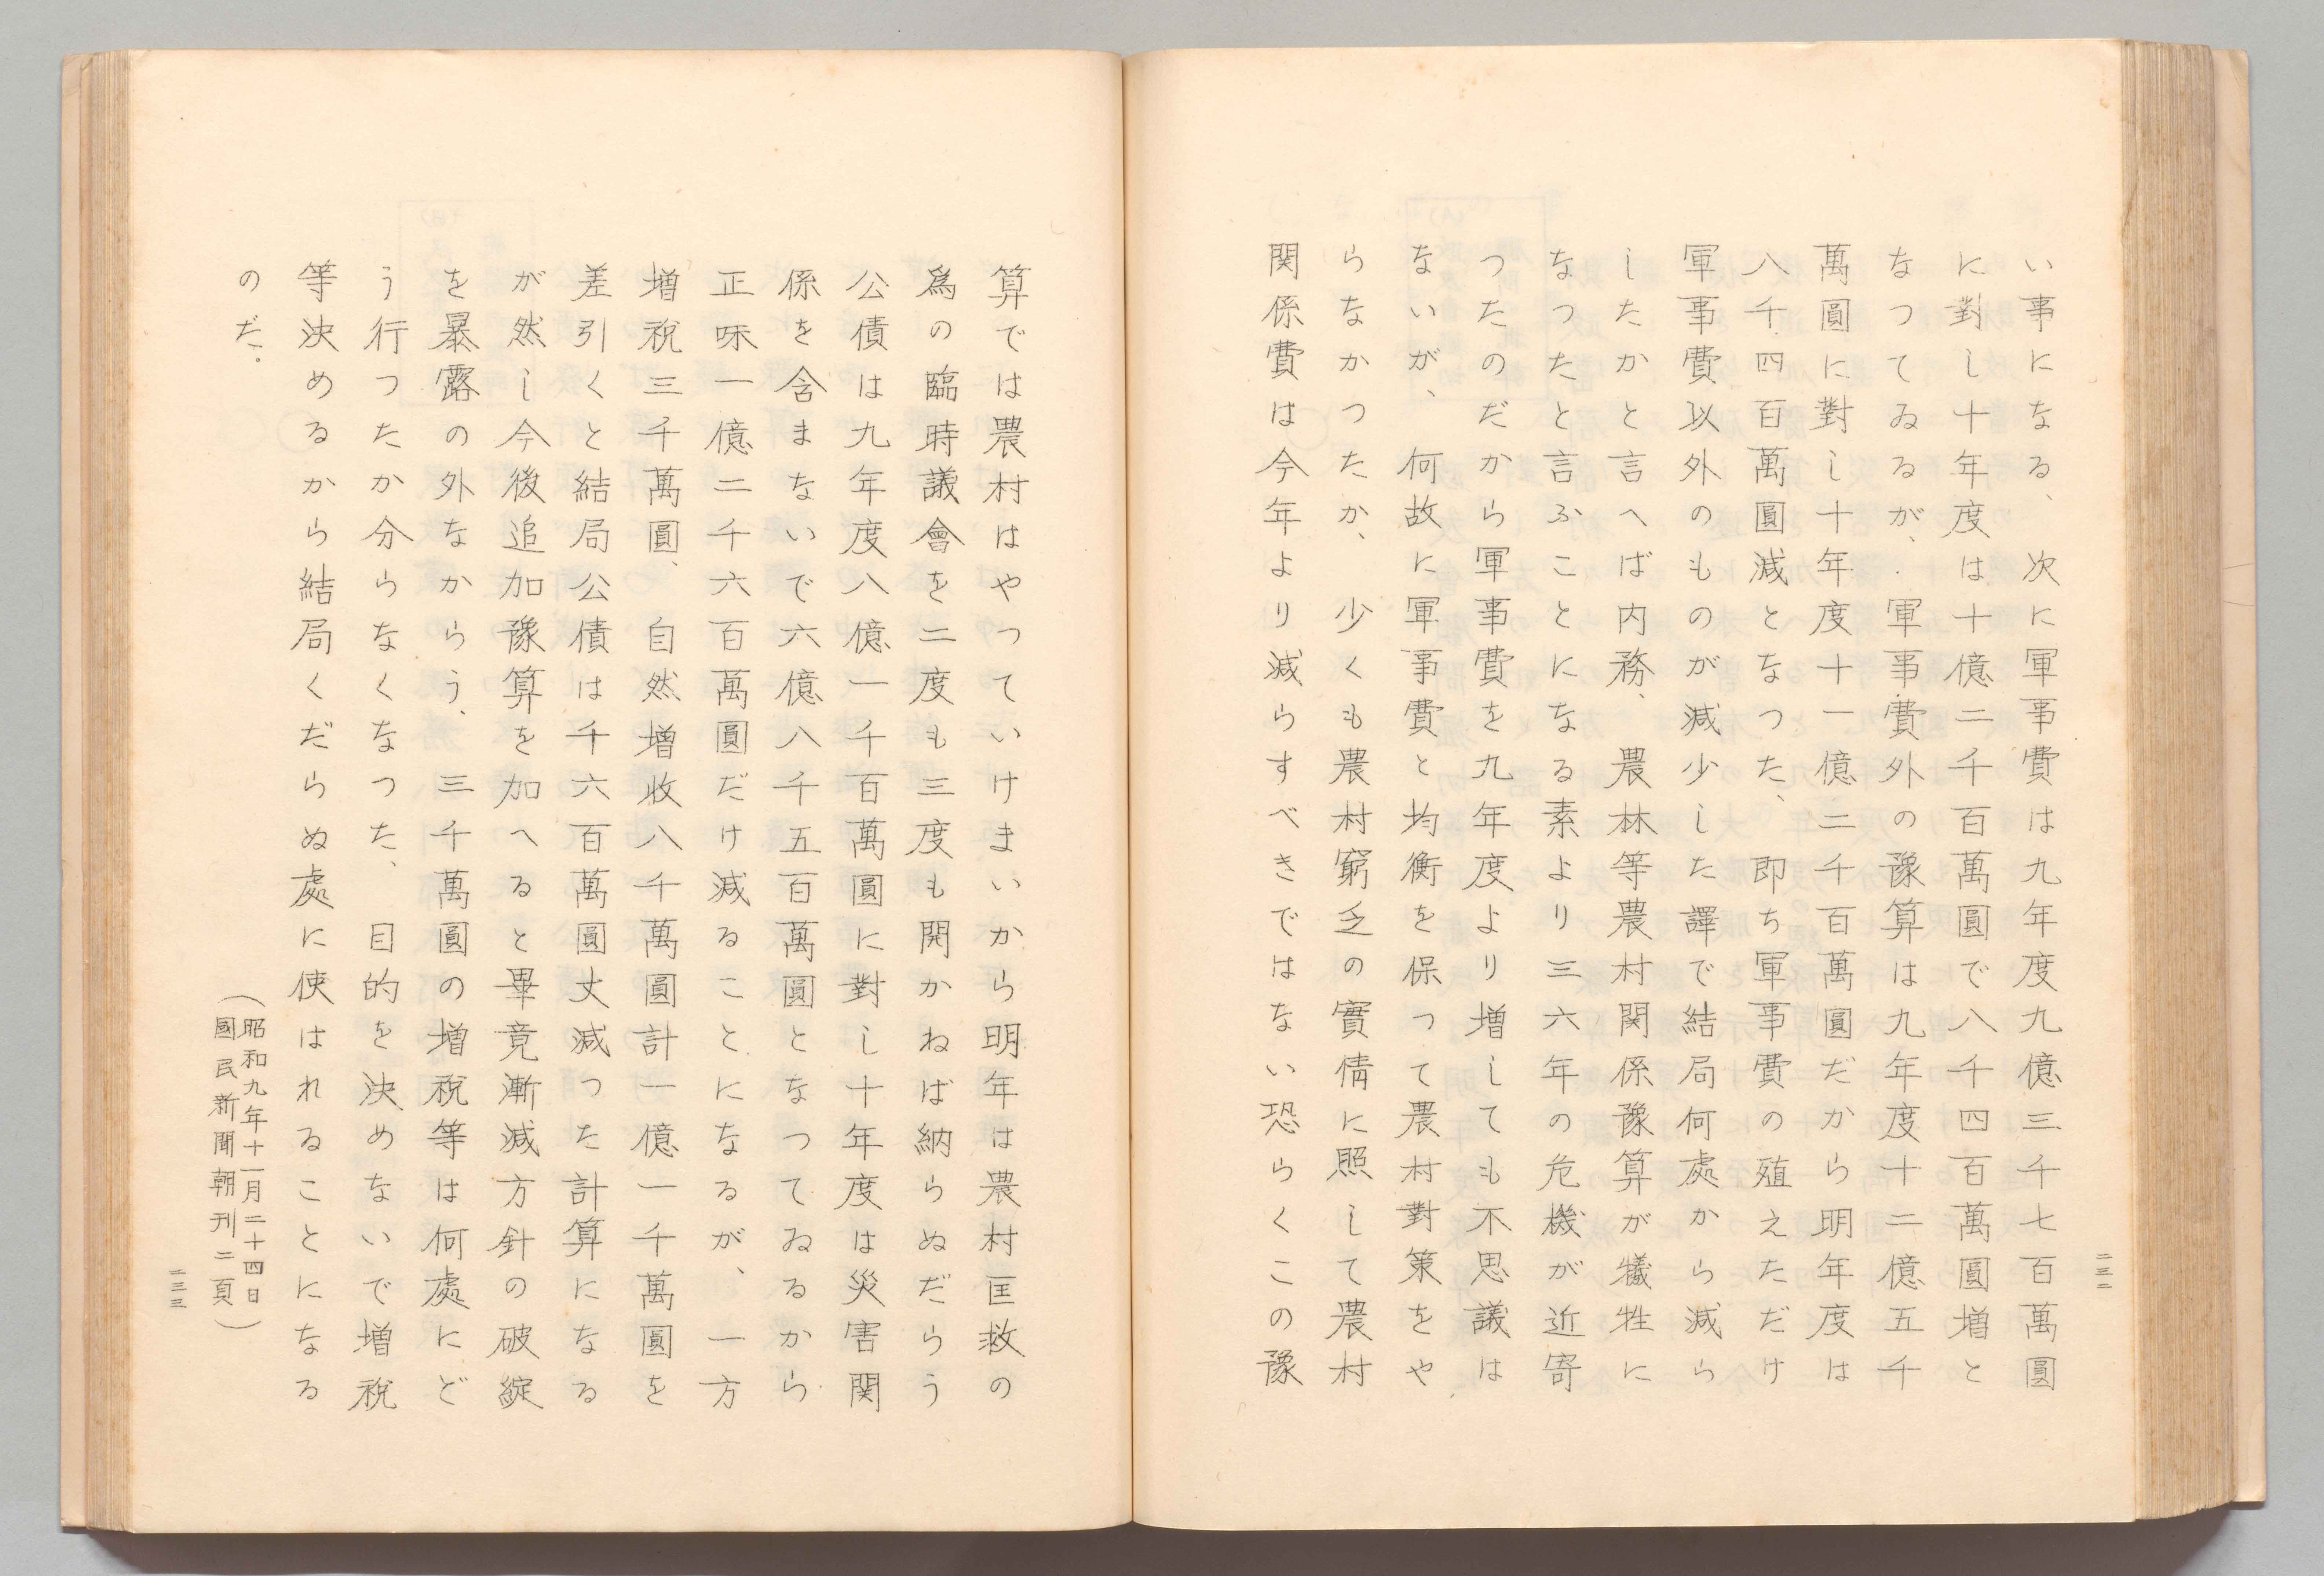 い事になる、次に軍事費は九年度九億三千七百萬圓
に對し十年度は十億二千百萬圓で八千四百萬圓増と
なつてゐるが、軍事費外の豫算は九年度十二億五千
萬圓に對し十年度十一億二千百萬圓だから明年度は
八千四百萬圓減となつた、即ち軍事費の殖えただけ
軍事費以外のものが減少した譯で結局何處から減ら
したかと言へば内務、農林等農村関係豫算が犠牲に
なつたと言ふことになる素より三六年の危機が近寄
つたのだから軍事費を九年度より増しても不思議は
ないが、何故に軍事費と均衡を保つて農村對策をや
らなかつたか、少くも農村窮乏の實情に照して農村
関係費は今年より減らすべきではない恐らくこの豫
二三二
算では農村はやつていけまいから明年は農村匡救の
爲の臨時議會を二度も三度も開かねば納らぬだらう
公債は九年度八億一千百萬圓に對し十年度は災害関
係を含まないで六億八千五百萬圓となつてゐるから
正味一億二千六百萬圓だけ減ることになるが、一方
増税三千萬圓、自然増收八千萬圓計一億一千萬圓を
差引くと結局公債は千六百萬圓丈減つた計算になる
が然し今後追加豫算を加へると畢竟漸減方針の破綻
を暴露の外なからう、三千萬圓の増税等は何處にど
う行つたか分らなくなつた、目的を決めないで増税
等決めるから結局くだらぬ處に使はれることになる
のだ.
(昭和九年十一月二十四日
國民新聞朝刊二頁)
二三三